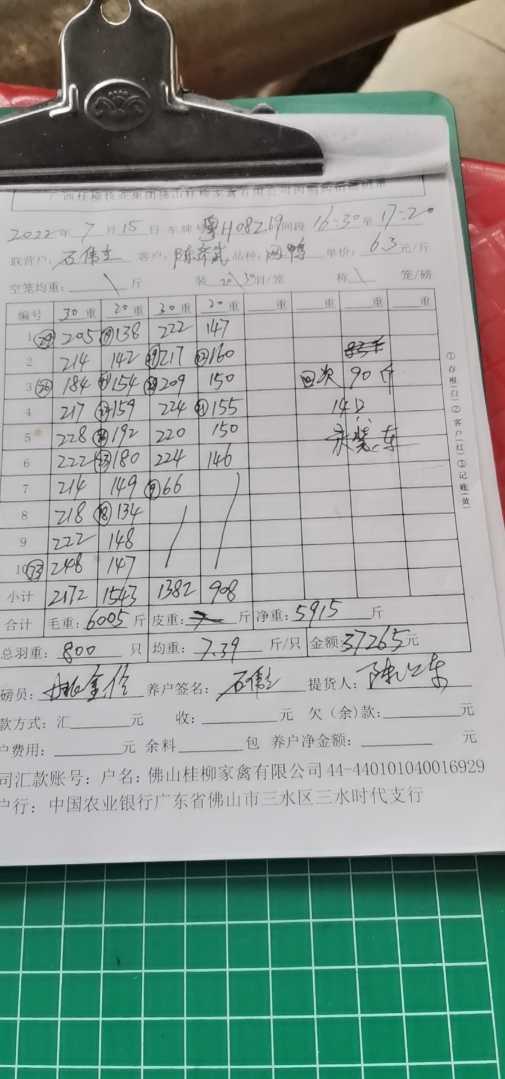 2022年7月15日 车牌号粤H08269 时段16-30至17-20
联营户: 石伟 客户: 品种: 单价: 6.3元/斤
空笼均重: \ 斤 装 20\30只/笼 称 \ 笼/磅
编号 30重 20重 30重 20重 重 重 重 重
1 29 205 19 138 222 147
2 214 142 217 160
3 184 154 209 150 次 90斤
4 217 159 224 21 155 14只
5 228 192 220 150
6 222 23 180 224 146
7 214 149 9 66
8 218 18 134
9 222 148
10 23 248 147
小计 2172 1543 1382 908
合计 毛重: 6005斤 皮重: 斤 净重: 5915 斤
总羽重: 800 只 均重: 7.39 斤/只 金额 37265元
磅员: 养户签名: 石伟 提货人: 陈
款方式: 汇 元 收: 元 欠(余)款: 元
户费用: 元 余料 包 养户净金额: 元
司汇款账号: 户名: 佛山桂柳家禽有限公司 44-440101040016929
户行: 中国农业银行广东省佛山市三水区三水时代支行
①存根(白)②客户(红)③记账(黄)